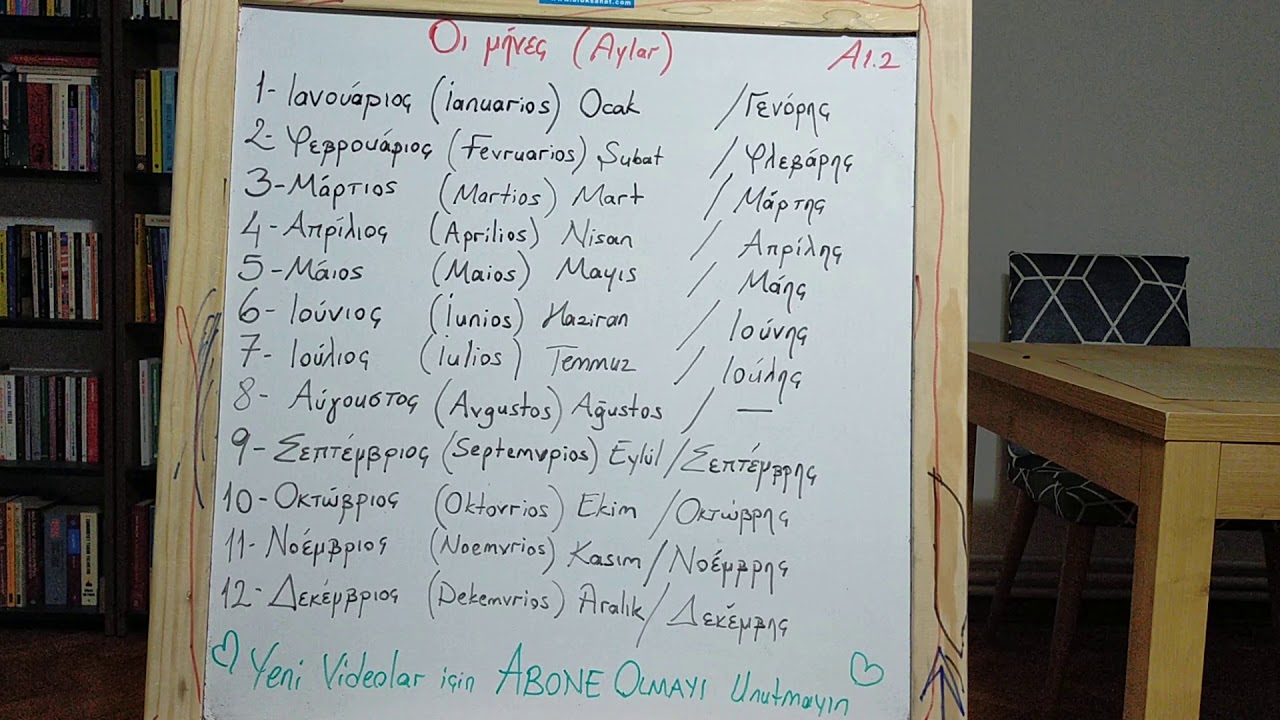 Οι μήνες (Aylar) A1.2
1- Ιανουάριος (İanuarios) Ocak / Γενάρης
2- Φεβρουάριος (Fevruarios) Şubat / Φλεβάρης
3- Μάρτιος (Martios) Mart / Μάρτης
4- Απρίλιος (Aprilios) Nisan / Απρίλης
5- Μάιος (Maios) Mayıs / Μάης
6- Ιούνιος (İunios) Haziran / Ιούνης
7- Ιούλιος (İulios) Temmuz / Ιούλης
8- Αύγουστος (Avgustos) Ağustos / —
9- Σεπτέμβριος (Septemvrios) Eylül / Σεπτέμβρης
10- Οκτώβριος (Oktovrios) Ekim / Οκτώβρης
11- Νοέμβριος (Noemvrios) Kasım / Νοέμβρης
12- Δεκέμβριος (Dekemvrios) Aralık / Δεκέμβης
Yeni Videolar için ABONE OLMAYI Unutmayın